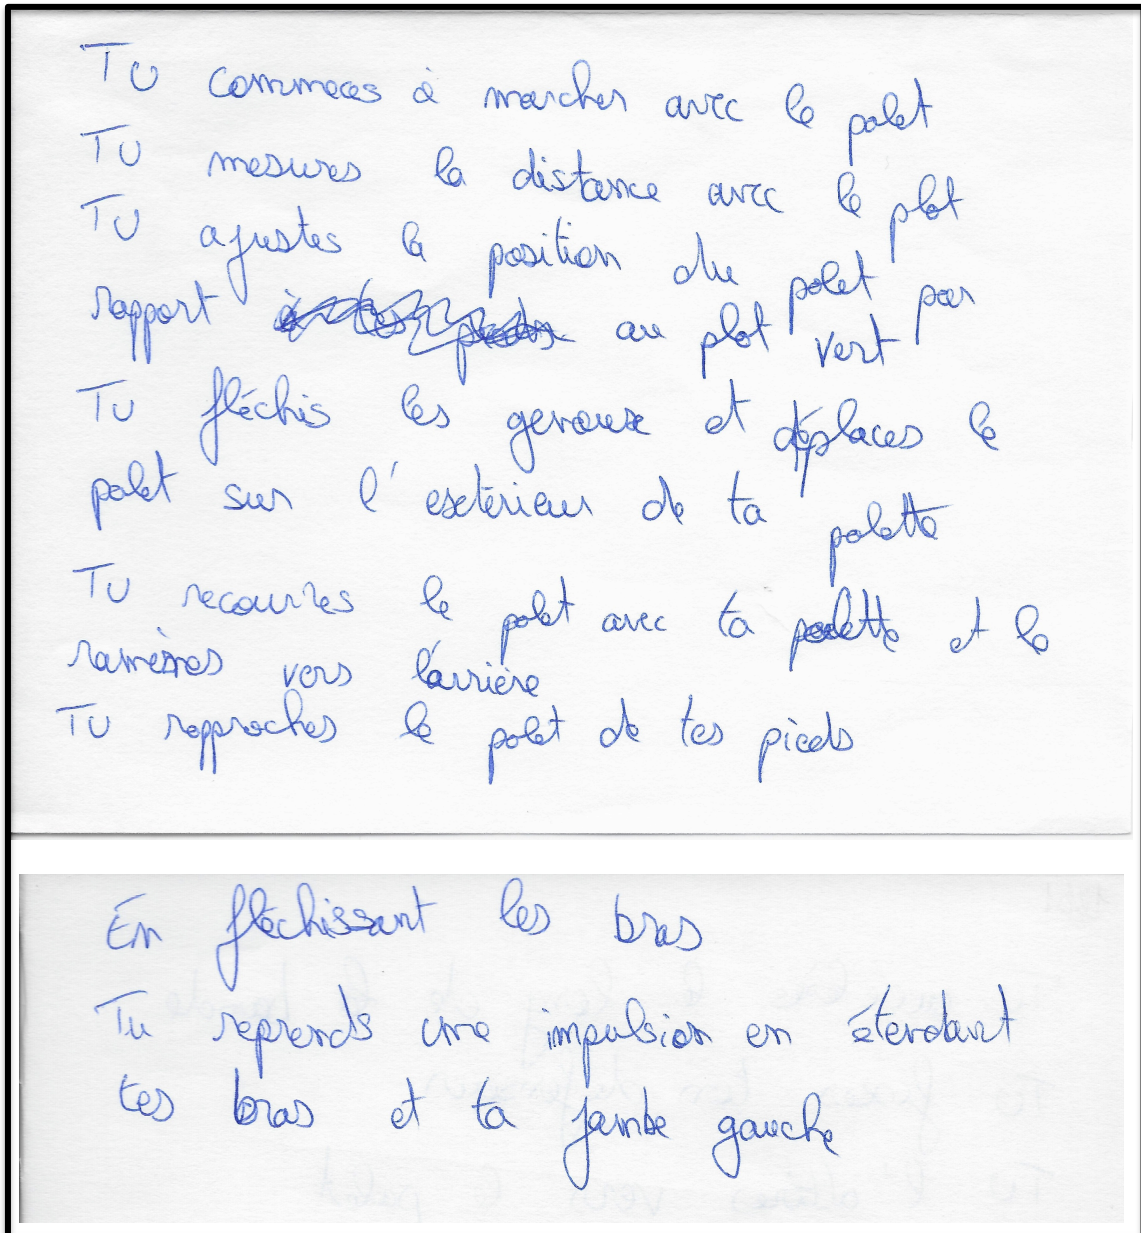 Tu commeces à marcher avec le palet
Tu mesures la distance avec le plot
Tu ajustes la position du palet par
rapport au plot vert
Tu fléchis les genoux et déplaces le
palet sur l'extérieur de ta palette
Tu recouvres le palet avec ta palette et le
ramènes vers l'arrière
Tu rapproches le palet de tes pieds
En fléchissant les bras
Tu reprends une impulsion en étendant
tes bras et ta jambe gauche